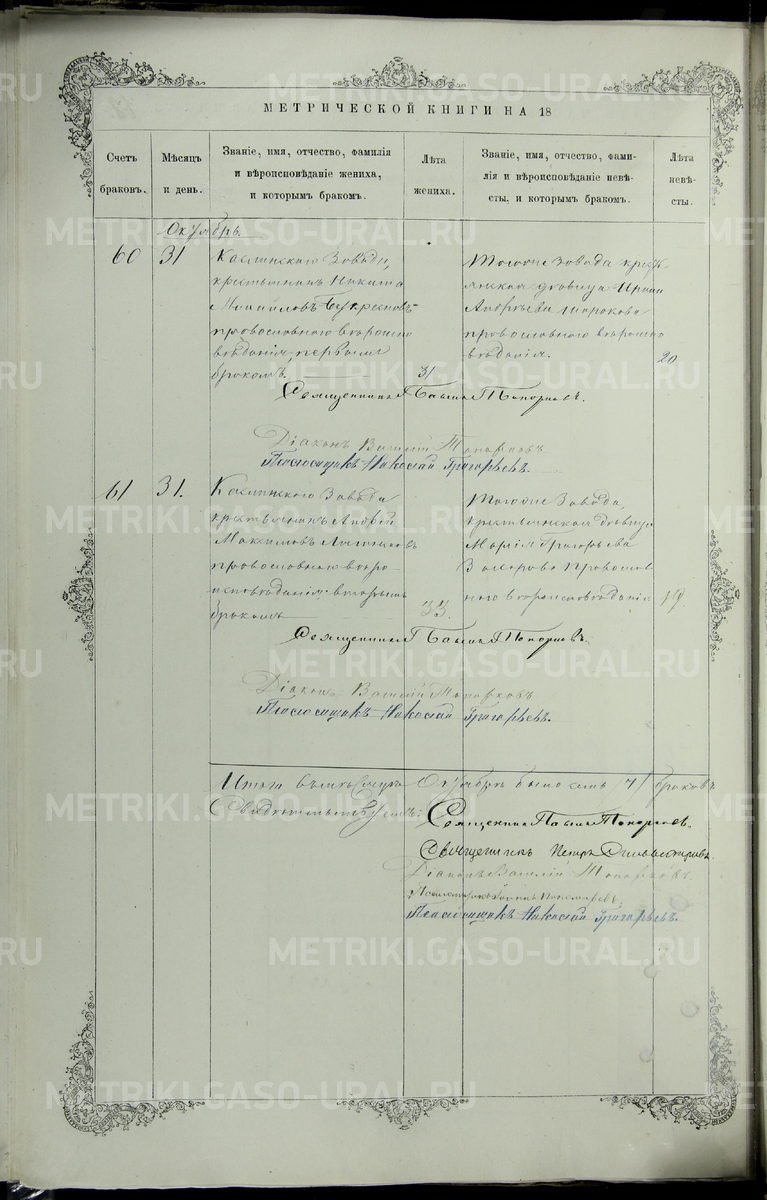 МЕТРИЧЕСКОЙ КНИГИ НА 18
Счетъ браковъ.
Мѣсяцъ и день.
Званіе, имя, отчество, фамилія и вѣроисповѣданіе жениха, и которымъ бракомъ.
Лѣта жениха.
Званіе, имя, отчество, фамилія и вѣроисповѣданіе невѣсты, и которымъ бракомъ.
Лѣта невѣсты.
Октябрь.
60
31
Каслинскаго Завода,
крестьянинъ Никита
Михайловъ
православного вѣроиспо
вѣданія, первымъ
бракомъ.
31
Тогоже Завода крестья
нская дѣвица Ирина
Андреева Широкова
православного вѣроиспо
вѣданія.
20
Священникъ Павелъ Топорковъ.
Діаконъ Василій Топорковъ
Псаломщикъ Николай Григорьевъ.
61
31.
Каслинскаго Завода
крестьянинъ Андрей
Максимовъ
православного вѣро
исповѣданія, вторымъ
бракомъ
33.
Тогоже Завода,
крестьянская дѣвица
Марія Григорьева
Захарова Православ
ного вѣроисповѣданія
19.
Священникъ Павелъ Топорковъ.
Діаконъ Василій Топорковъ
Псаломщикъ Николай Григорьевъ.
Итого въ мѣсяцѣ Октябрѣ было семь /7/ браковъ
Священникъ Павелъ Топорковъ.
Священникъ Петръ
Діаконъ Василій Топорковъ
Псаломщикъ Николай Григорьевъ.
METRIKI.GASO-URAL.RU